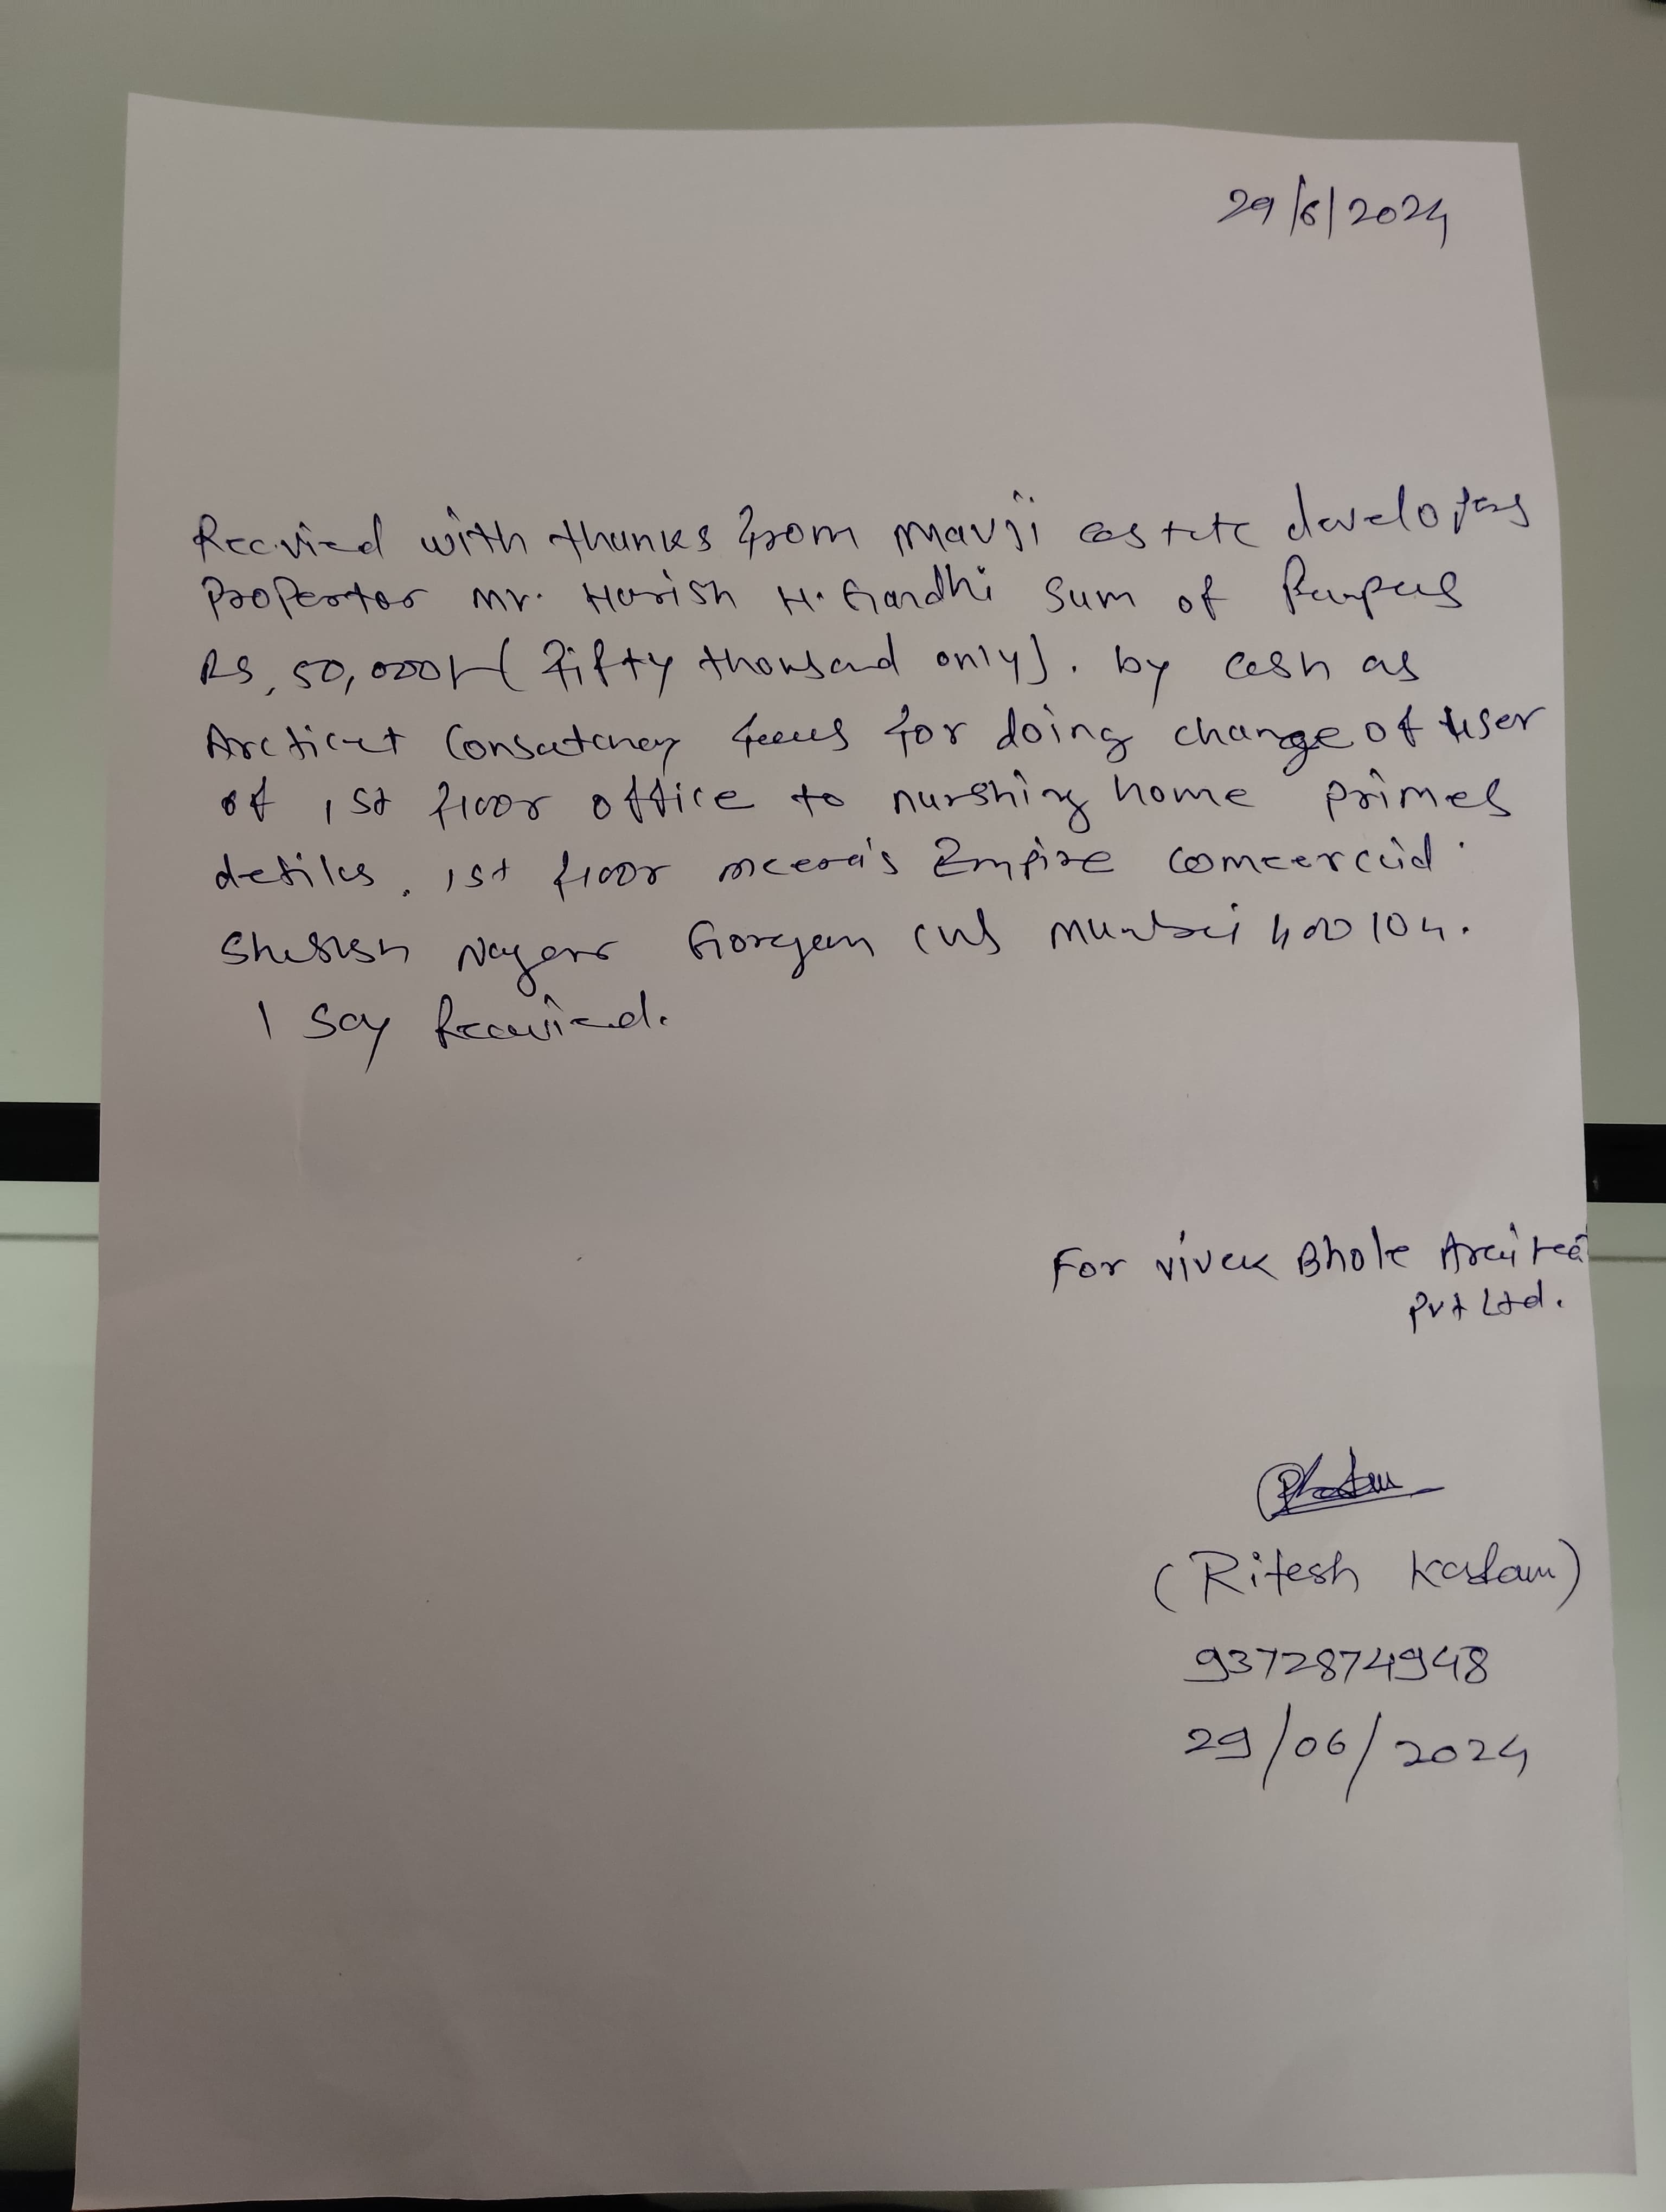 29/6/2024
Recevied with thanks from mavji estate developers
Propertor mr. Harish H. Gandhi Sum of Rupees
RS, 50,000/- (Fifty thousand only). by cash as
Arcticet Consutcney fees for doing change of user
of 1st floor office to nurshing home primes
detiles. 1st floor meera's Empire comeercial
Shastri Nagar Goregaon (W) mumbai 400104.
I Say Received.
For vivek Bhole Arcitect
Pvt Ltd.
(Ritesh Kadam)
9372874948
29/06/2024